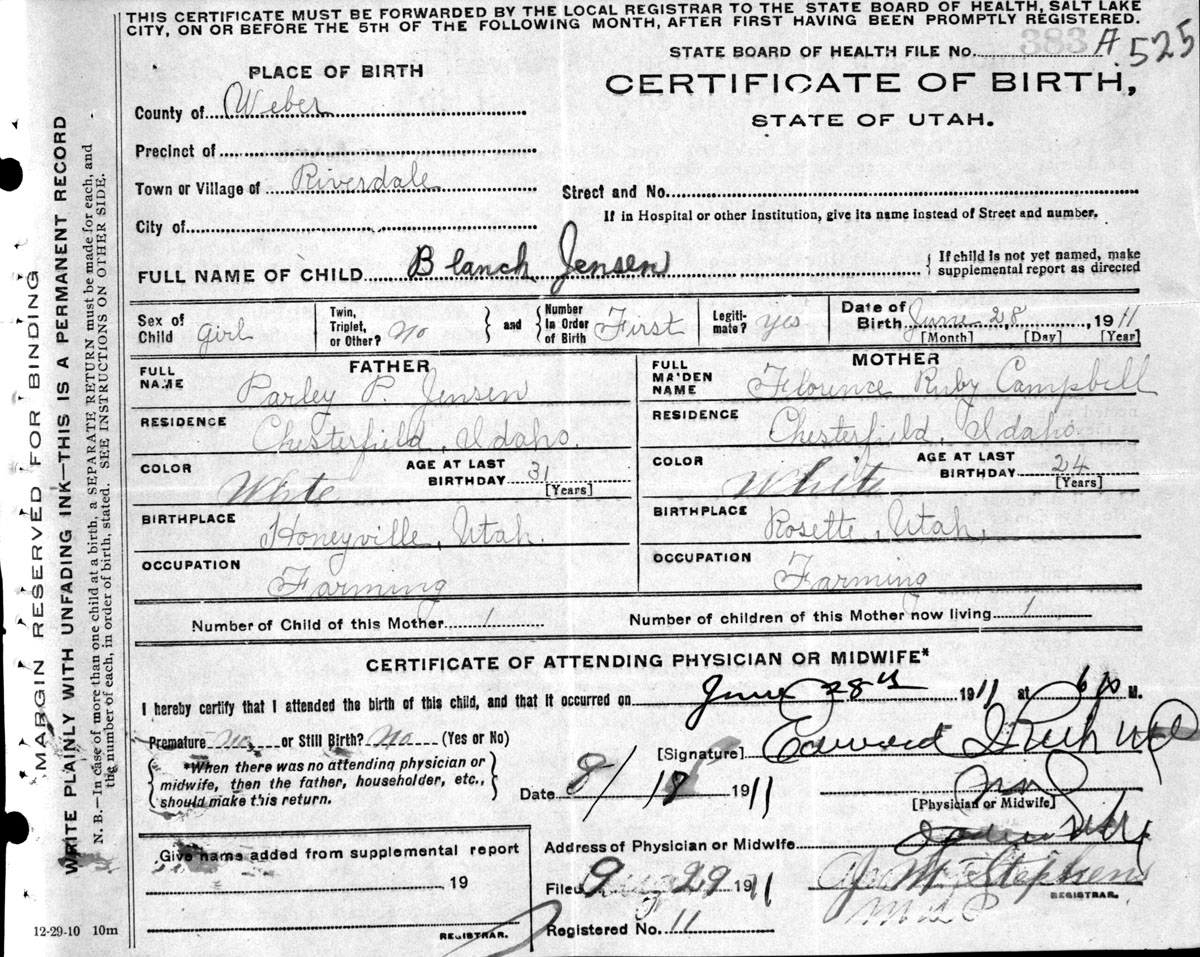 THIS CERTIFICATE MUST BE FORWARDED BY THE LOCAL REGISTRAR TO THE STATE BOARD OF HEALTH, SALT LAKE
CITY, ON OR BEFORE THE 5TH OF THE FOLLOWING MONTH, AFTER FIRST HAVING BEEN PROMPTLY REGISTERED.
STATE BOARD OF HEALTH FILE No. 383 A.525
PLACE OF BIRTH
CERTIFICATE OF BIRTH,
STATE OF UTAH.
County of Weber
Precinct of
Town or Village of Riverdale
Street and No.
If in Hospital or other Institution, give its name instead of Street and number.
City of
FULL NAME OF CHILD Blanch Jensen
{ If child is not yet named, make
supplemental report as directed
Sex of Child girl
Twin, Triplet, or Other? No } and { Number In Order of Birth First
Legiti-mate? yes
Date of Birth June 28, 1911
[Month] [Day] [Year]
FATHER
MOTHER
FULL NAME Parley P. Jensen
FULL MA'DEN NAME Florence Ruby Campbell
RESIDENCE Chesterfield, Idaho.
RESIDENCE Chesterfield, Idaho.
COLOR White
AGE AT LAST BIRTHDAY 31 [Years]
COLOR White
AGE AT LAST BIRTHDAY 24 [Years]
BIRTHPLACE Honeyville, Utah.
BIRTHPLACE Rosette, Utah,
OCCUPATION Farming
OCCUPATION Farming
Number of Child of this Mother 1
Number of children of this Mother now living 1
CERTIFICATE OF ATTENDING PHYSICIAN OR MIDWIFE*
I hereby certify that I attended the birth of this child, and that it occurred on June 28th 1911 at 6 p M.
Premature No or Still Birth? No (Yes or No)
[Signature] Edward
{ *When there was no attending physician or
midwife, then the father, householder, etc.,
should make this return. }
Date 8/18 1911
[Physician or Midwife]
Give name added from supplemental report
19
REGISTRAR.
Address of Physician or Midwife
Filed Aug 29 1911
Stephens
REGISTRAR.
Registered No. 11
12-29-10 10m
MARGIN RESERVED FOR BINDING
WRITE PLAINLY WITH UNFADING INK—THIS IS A PERMANENT RECORD
N. B.—In case of more than one child at a birth, a SEPARATE RETURN must be made for each, and
the number of each, in order of birth, stated. SEE INSTRUCTIONS ON OTHER SIDE.